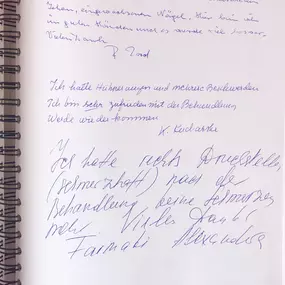 Zehen, eingewachsenen Nägel. Hier bin ich
in guten Händen und es wurde viel besser.
Vielen Dank
Ich hatte Hühneraugen und mehrere Beschwerden
Ich bin sehr zufrieden mit der Behandlung
Werde wieder kommen
K.
Ich hatte rechts Druckstelle
(schmerzhaft) nach der
Behandlung keine Schmerzen
mehr. Vielen Dank!
Alexandra